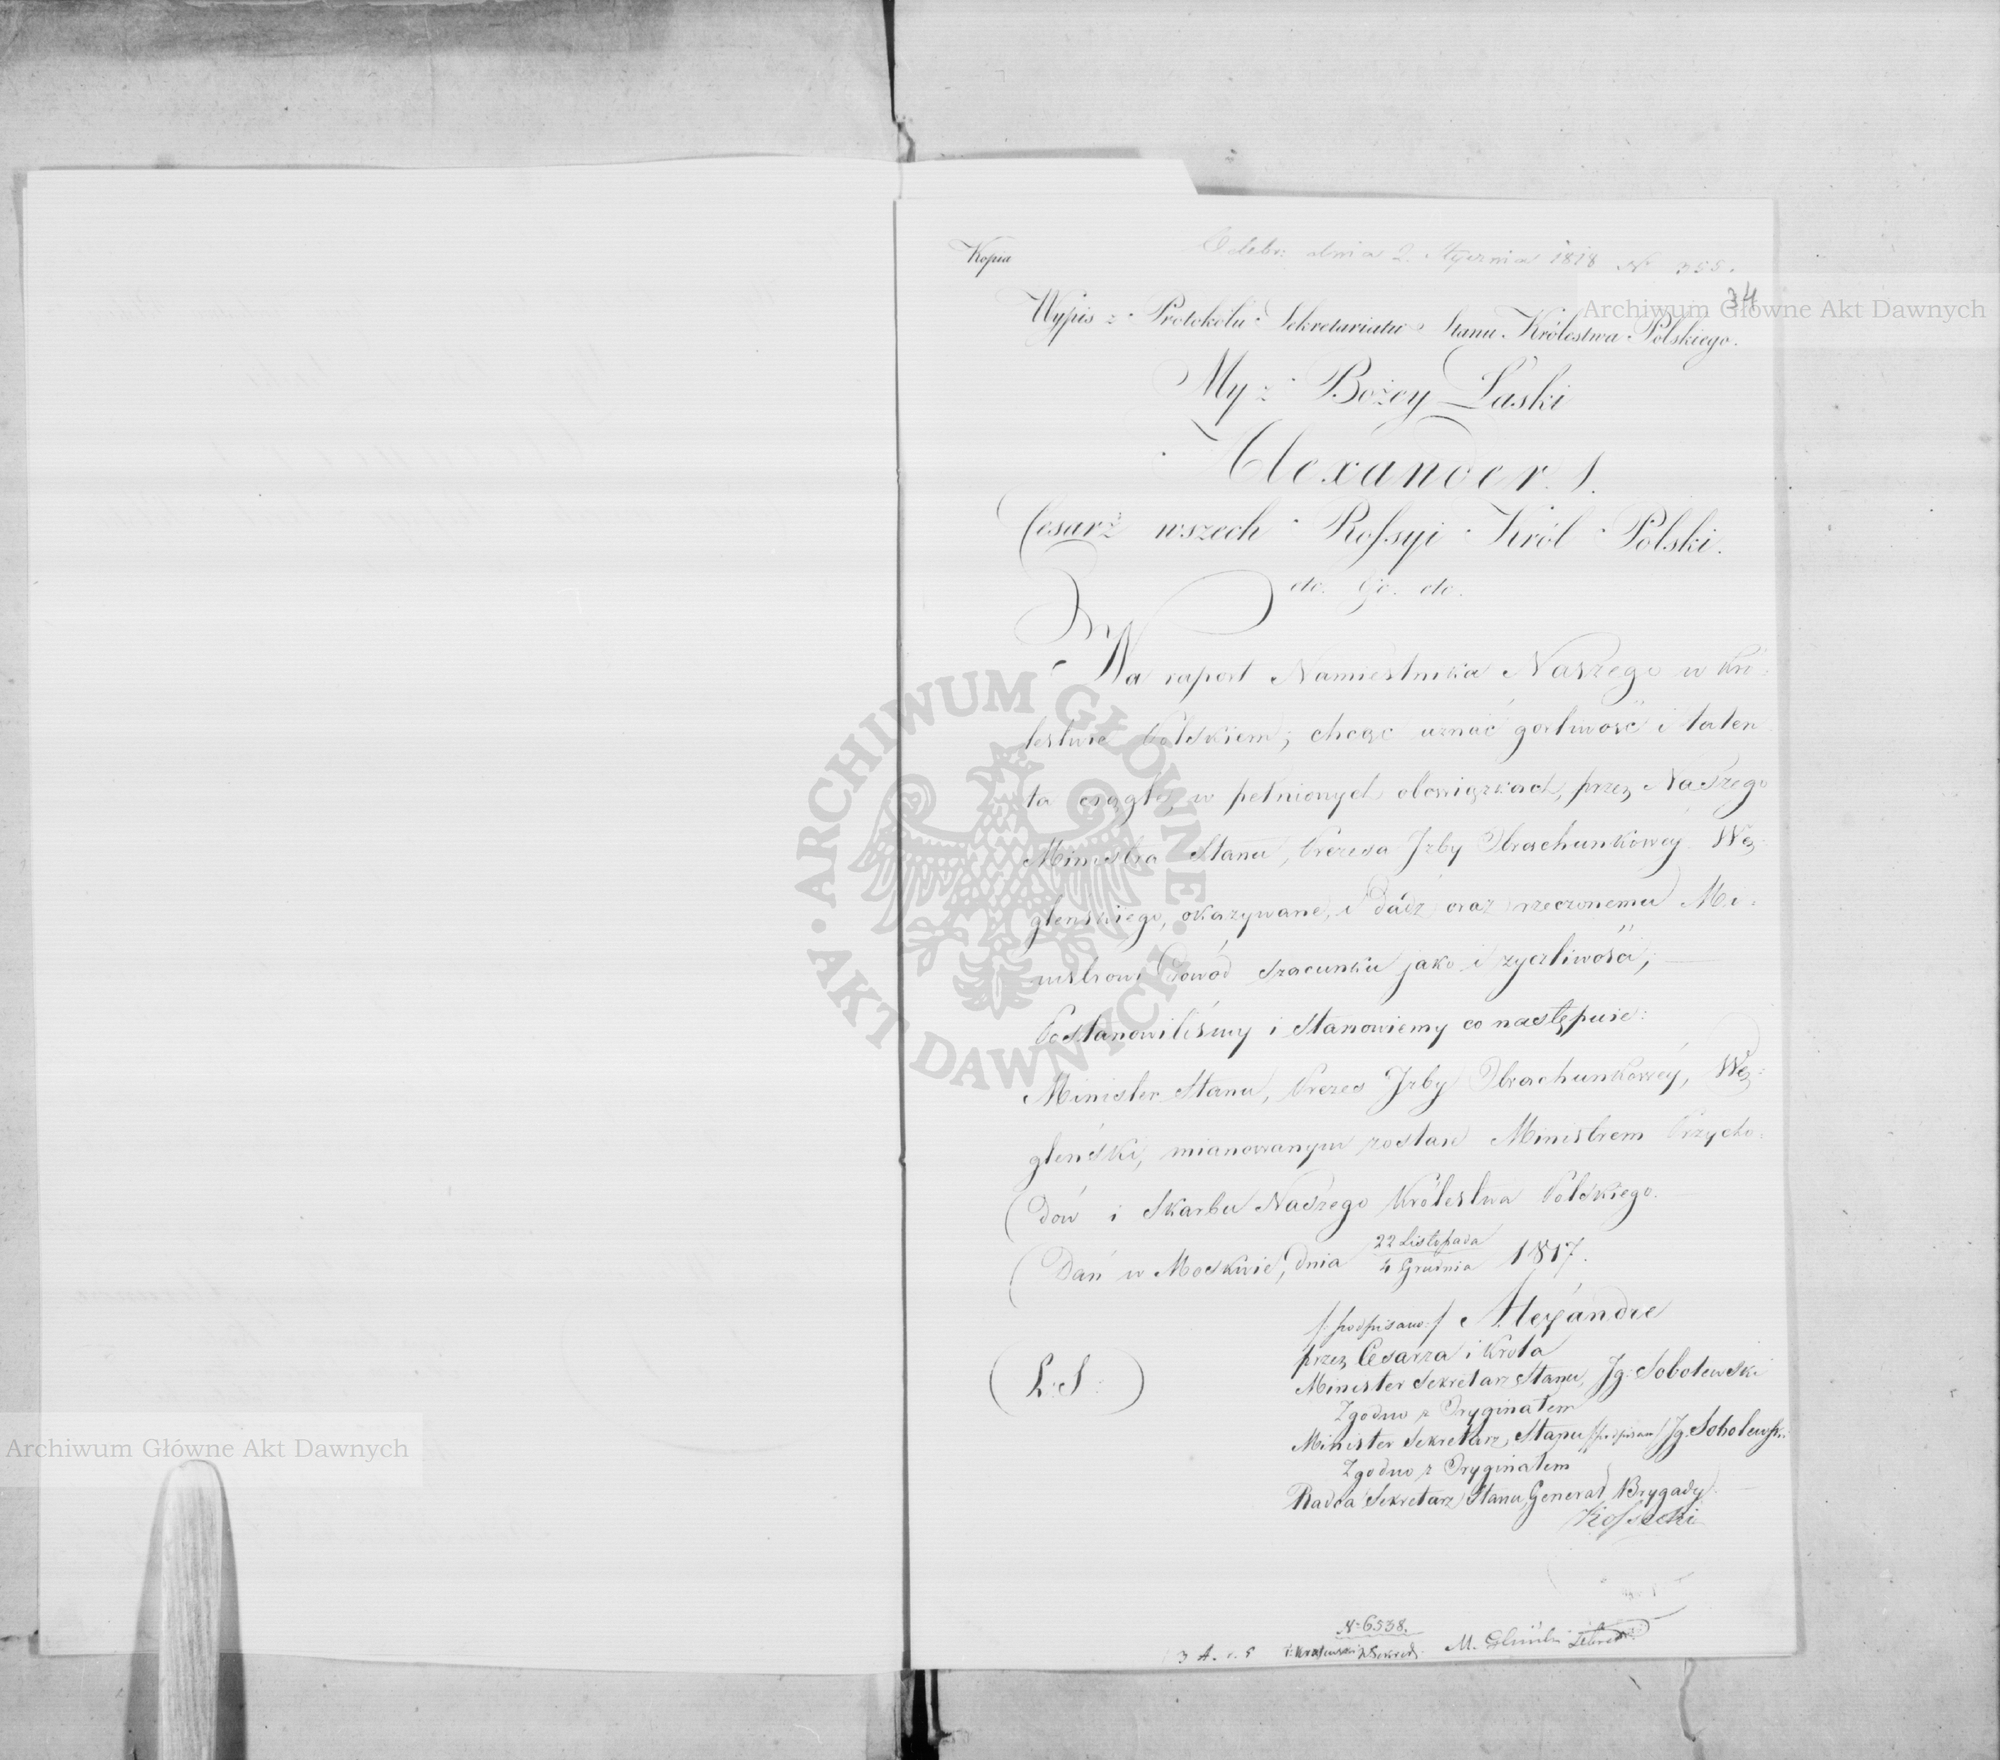 Kopia
Odebr: dnia 2. Stycznia 1818 N° 355.
34
Archiwum Główne Akt Dawnych
Wypis z Protokólu Sekretariatu Stanu Królestwa Polskiego.
My z Bożey Łaski
Alexander I.
Cesarz wszech Rossyi Król Polski.
etc. etc. etc.
Na raport Namiestnika Naszego w Kró-
lestwie Polskiem; chcąc uznać gorliwość i talen
ta ciągle w pełnionych obowiązkach, przez Naszego
Ministra Stanu, Prezesa Izby Obrachunkowey Wę-
gleńskiego, okazywane, i dadź oraz rzeczonemu Mi-
nistrowi dowód szacunku jako i życzliwości,
Postanowiliśmy i Stanowiemy co następuie:
Minister Stanu, Prezes Izby Obrachunkowéy, Wę-
gleński, mianowanym zostaie Ministrem Przycho-
dów i Skarbu Naszego Królestwa Polskiego.
Dań w Moskwie, dnia 22 Listopada / 4 Grudnia 1817.
/:podpisano:/ Alexandre
przez Cesarza i Króla
(L:S:)
Minister Sekretarz Stanu, Ig: Sobolewski
Zgodno z Oryginałem
Minister Sekretarz Stanu /podpisan/ Ig. Sobolewski
Zgodno z Oryginałem
Radca Sekretarz Stanu Generał Brygady
Kossecki
N° 6538.
ARCHIWUM GŁÓWNE AKT DAWNYCH
Archiwum Główne Akt Dawnych